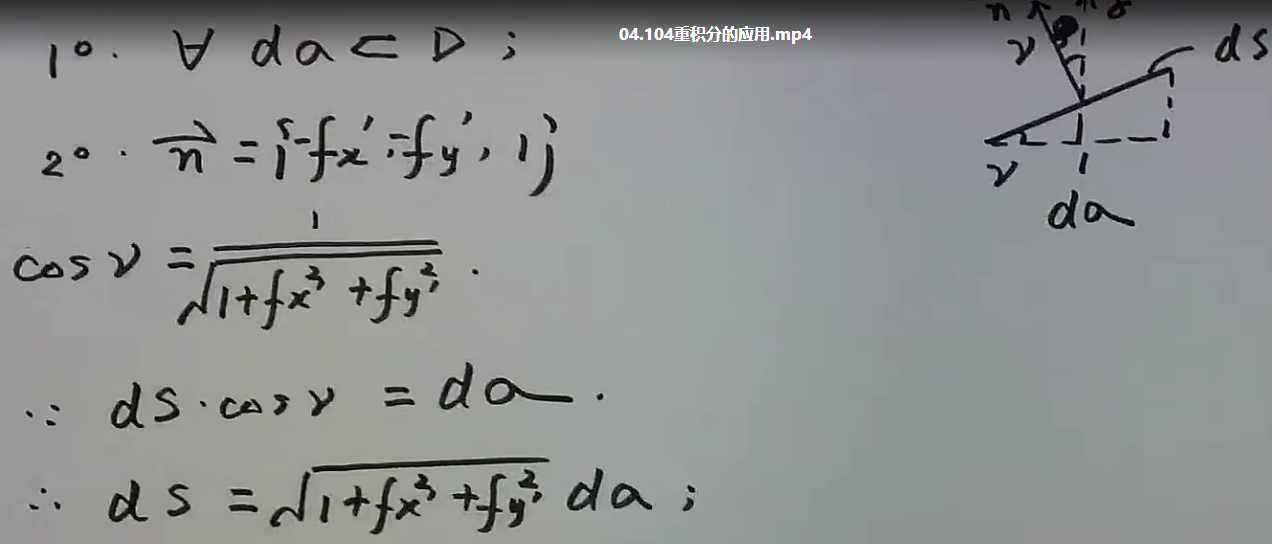 04.104重积分的应用.mp4
1°. ∀ dσ ⊂ D ;
2°. n⃗ = {-fx', -fy', 1}
cos γ = 1/√(1+fx'² + fy'²) .
∵ ds·cos γ = dσ .
∴ ds = √(1+fx'² + fy'²) dσ ;
n
γ
ds
γ
dσ